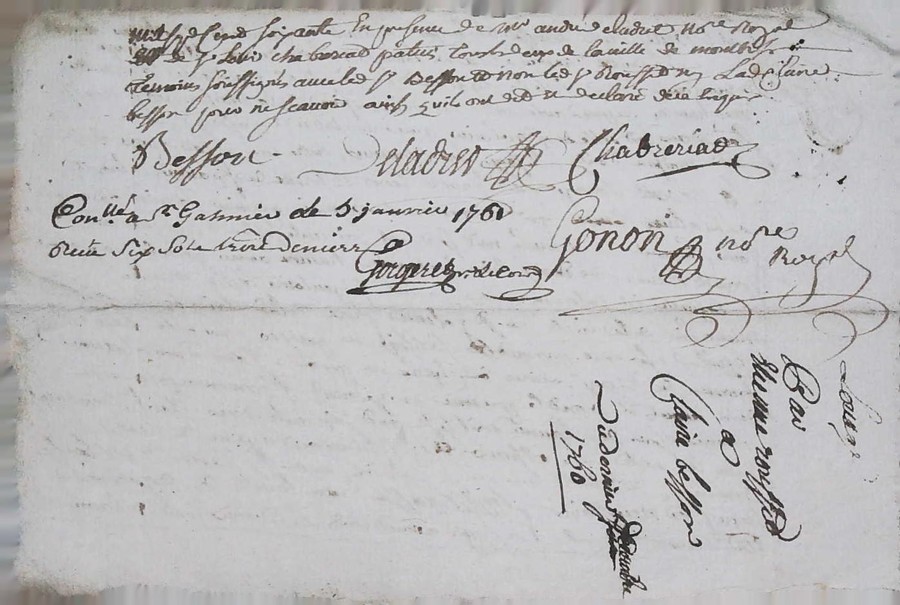 mil sept cent soixante En presence de Mr andré deladret No.re Royal
et de Sr Louis chabreriad patissier tous deux de la ville de
Temoins soussignés avec led Sr Besson & non led Sr Roussed ny Lad Claire
besson pour ne scavoir ainsy qu'ils ont dit & declaré de ce Enquis
Besson Deladret Chabreriad
Con.llé a St Galmier le 5 janvier 1761
Receu six sols trois deniers
Gonon no.re Royal
Louze
Bail
Etienne roussed
a
Claire besson
Du dernier decembre
1760